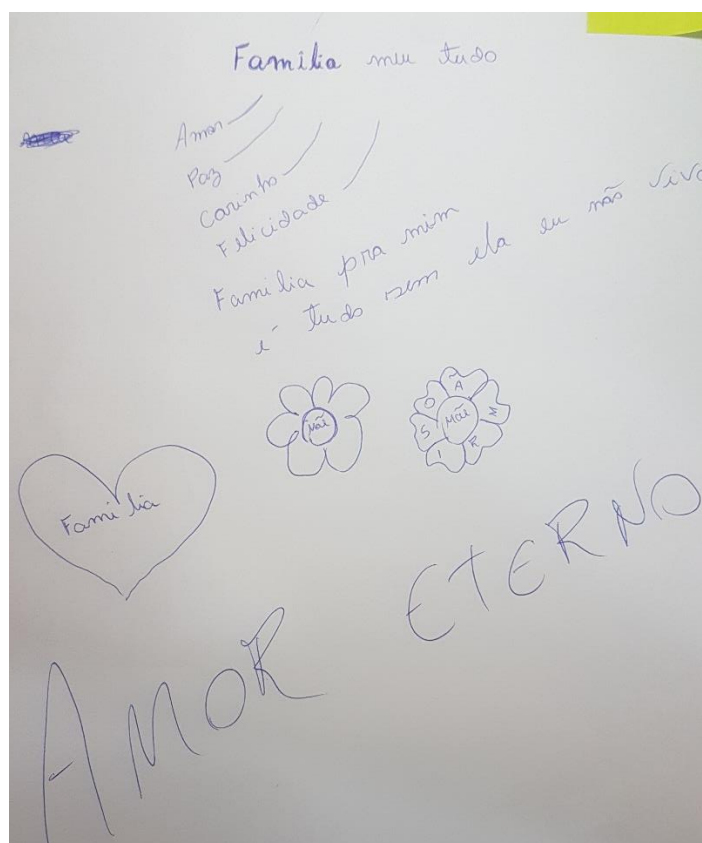 Familia meu tudo
Amor
Paz
Carinho
Felicidade
Familia pra mim
é tudo sem ela eu não vivo
Mãe
Mãe
I R M Ã O S
Familia
AMOR ETERNO